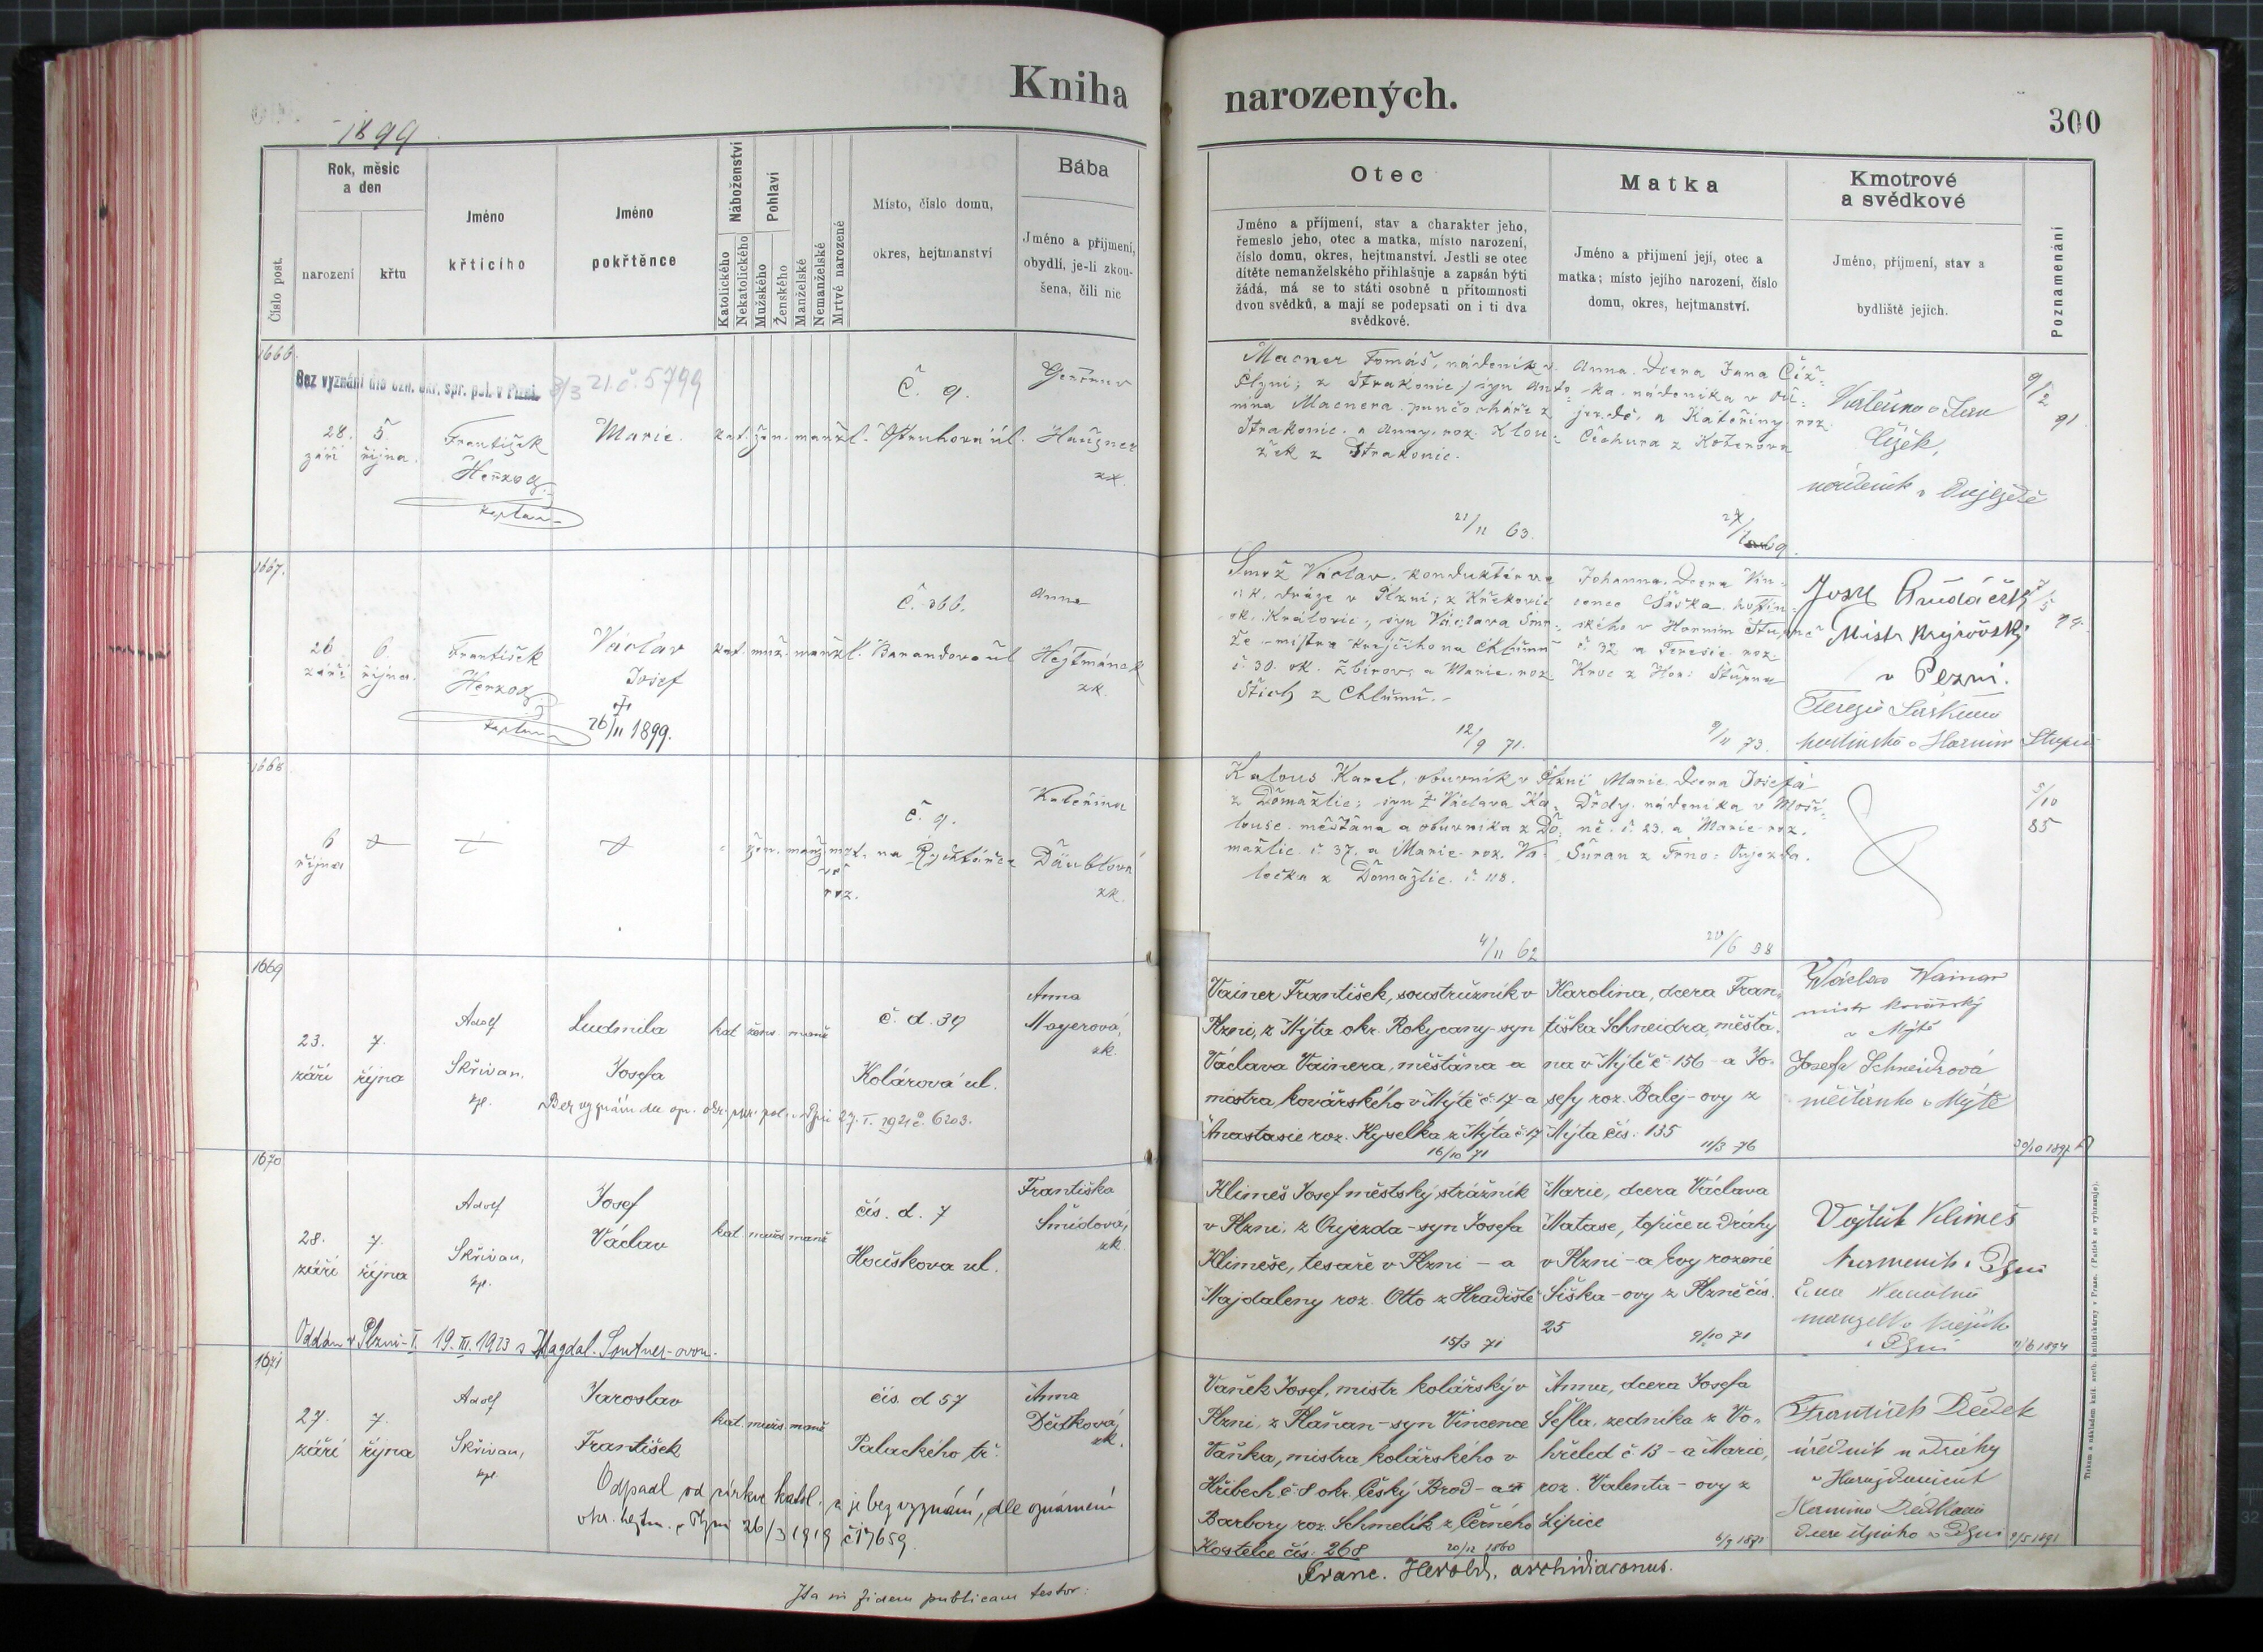 Kniha narozených.
300
1899
Číslo post.
Rok, měsíc
a den
narození
křtu
Jméno
křtícího
Jméno
pokřtěnce
Náboženství
Katolického
Nekatolického
Pohlaví
Mužského
Ženského
Manželské
Nemanželské
Mrtvě narozené
Místo, číslo domu,
okres, hejtmanství
Bába
Jméno a příjmení,
obydlí, je-li zkou-
šena, čili nic
Otec
Jméno a příjmení, stav a charakter jeho,
řemeslo jeho, otec a matka, místo narození,
číslo domu, okres, hejtmanství. Jestli se otec
dítěte nemanželského přihlašuje a zapsán býti
žádá, má se to státi osobně u přítomnosti
dvou svědků, a mají se podepsati on i ti dva
svědkové.
Matka
Jméno a příjmení její, otec a
matka; místo jejího narození, číslo
domu, okres, hejtmanství.
Kmotrové
a svědkové
Jméno, příjmení, stav a
bydliště jejich.
Poznamenání
1666.
Bez vyznání dle ozn. okr. spr. pol. v Plzni. 8/3 21. č. 5799
28.
září
5.
října.
František
Herzog
kaplan
Marie.
kat. žen. manžl.
Č. 9.
Haužner
zk.
Macner Tomáš, nádeník v
Plzni; z Strakonic, syn Anto-
nína Macnera, punčocháře z
Strakonic. a Anny, roz. Klou-
žek z Strakonic.
21/11 63.
Anna. Dcera Jana Číž-
ka. nádeníka v Ou-
jezdě. a Kateřiny roz.
Čechura z Koterova
Čížek,
nádeník v Oujezdě
9/2
91.
1667.
26
září
6.
října.
František
Herzog
kaplan
Václav
Josef
26/11 1899.
kat. muž. manžl.
Č. 366.
Barandova úl
Anna
Hejtmánek
zk.
Smrž Václav, konduktér na
dráze v Plzni; z Křekovic
ok. Kralovic, syn Václava Smr-
že mistra krejčího na Chlumu
č 30. ok. Zbirov, a Marie, roz
Štich z Chlumu.-
12/9 71.
Johanna. Dcera Vin-
cence Šáška. hostin-
ského v Horním Stupně
č 32 a Terezie roz
Kroc z Hor: Stupna
9/11 73.
Mistr krejčovský
v Plzni.
Terezie Šášková
hostinská v Horním Stupně
1668
6
října
žen. manž.
roz.
č. 9.
na Rychtářce
Kateřina
Däublová
zk.
Kalous Karel, obuvník v Plzni
z Domažlic; syn Václava Ka-
louse. měšťana a obuvníka z Do-
mažlic. č. 37. a Marie roz. Va-
lečka z Domažlic. č. 118.
4/11 62
Marie Dcera Josefa
Dědy. nádeníka v Moší-
ně. č. 23. a Marie roz.
Suran z Trno: Oujezda.
20/6 58
5/10
85
1669
23.
září
7.
října
Adolf
Skřivan,
kpl.
Ludmila
Josefa
kat žens. manž
č. d. 39
Kolárova ul.
Anna
Mayerová,
zk.
Bez vyznání dle op. okr. spr. pol. v Plzni 27. I. 1921 č. 6203.
Vainer František, soustružník v
Plzni, z Mýta okr. Rokycany - syn
Václava Vainera, měšťana - a
mistra kovářského v Mýtě č. 17 - a
Anastasie roz. Kyselka z Mýta č. 17
16/10 71
Karolina, dcera Fran-
tiška Schneidra, měšťa-
na v Mýtě č 156 - a Jo-
sefy roz. Balej-ovy z
Mýta čís. 135
11/3 76
Václav Wainer
mistr kovářský
v Mýtě
Josefa Schneidrová
měšťanka v Mýtě
1670
28.
září
7.
října
Adolf
Skřivan,
kpl.
Josef
Václav
kat. mužs. manž
čís. d. 7
Houškova ul.
Františka
Šmídová,
zk.
Oddán v Plzni-I. 19. III. 1923 s Magdal. Soutner-ovou.
Klimeš Josef městský strážník
v Plzni, z Oujezda - syn Josefa
Klimeše, tesaře v Plzni - a
Majdaleny roz. Otto z Hradiště
15/3 71
Marie, dcera Václava
Matase, topiče u dráhy
v Plzni - a Evy rozené
Šiška-ovy z Plzně čís.
25
9/10 71
Vojtěch Klimeš
11/6 1894
1671
27.
září
7.
října
Adolf
Skřivan,
kpl.
Jaroslav
František
kat. mužs. manž
čís. d 57
Palackého tř.
Anna
Dědková,
zk.
Odpadl od církve katol. a je bez vyznání, dle oznámení
okr. hejtm. v Plzni 26/3 1919 č 17659.
Vaněk Josef, mistr kolářský v
Plzni, z Plaňan - syn Vincence
Vaňka, mistra kolářského v
Hřibech č. 8 okr. Český Brod - a
Barbory roz. Schmelík z Černého
Kostelce čís: 268
20/12 1860
Anna, dcera Josefa
Šefla. zedníka z Vo-
hřeled č. 13 - a Marie,
roz. Valenta-ovy z
Lipice
6/9 1871
František Dědek
úředník u dráhy
v Horažďovicích
Hermina Dědková
9/5 1891
Ita in fidem publicam testor:
Franc. Herold, archidiaconus.